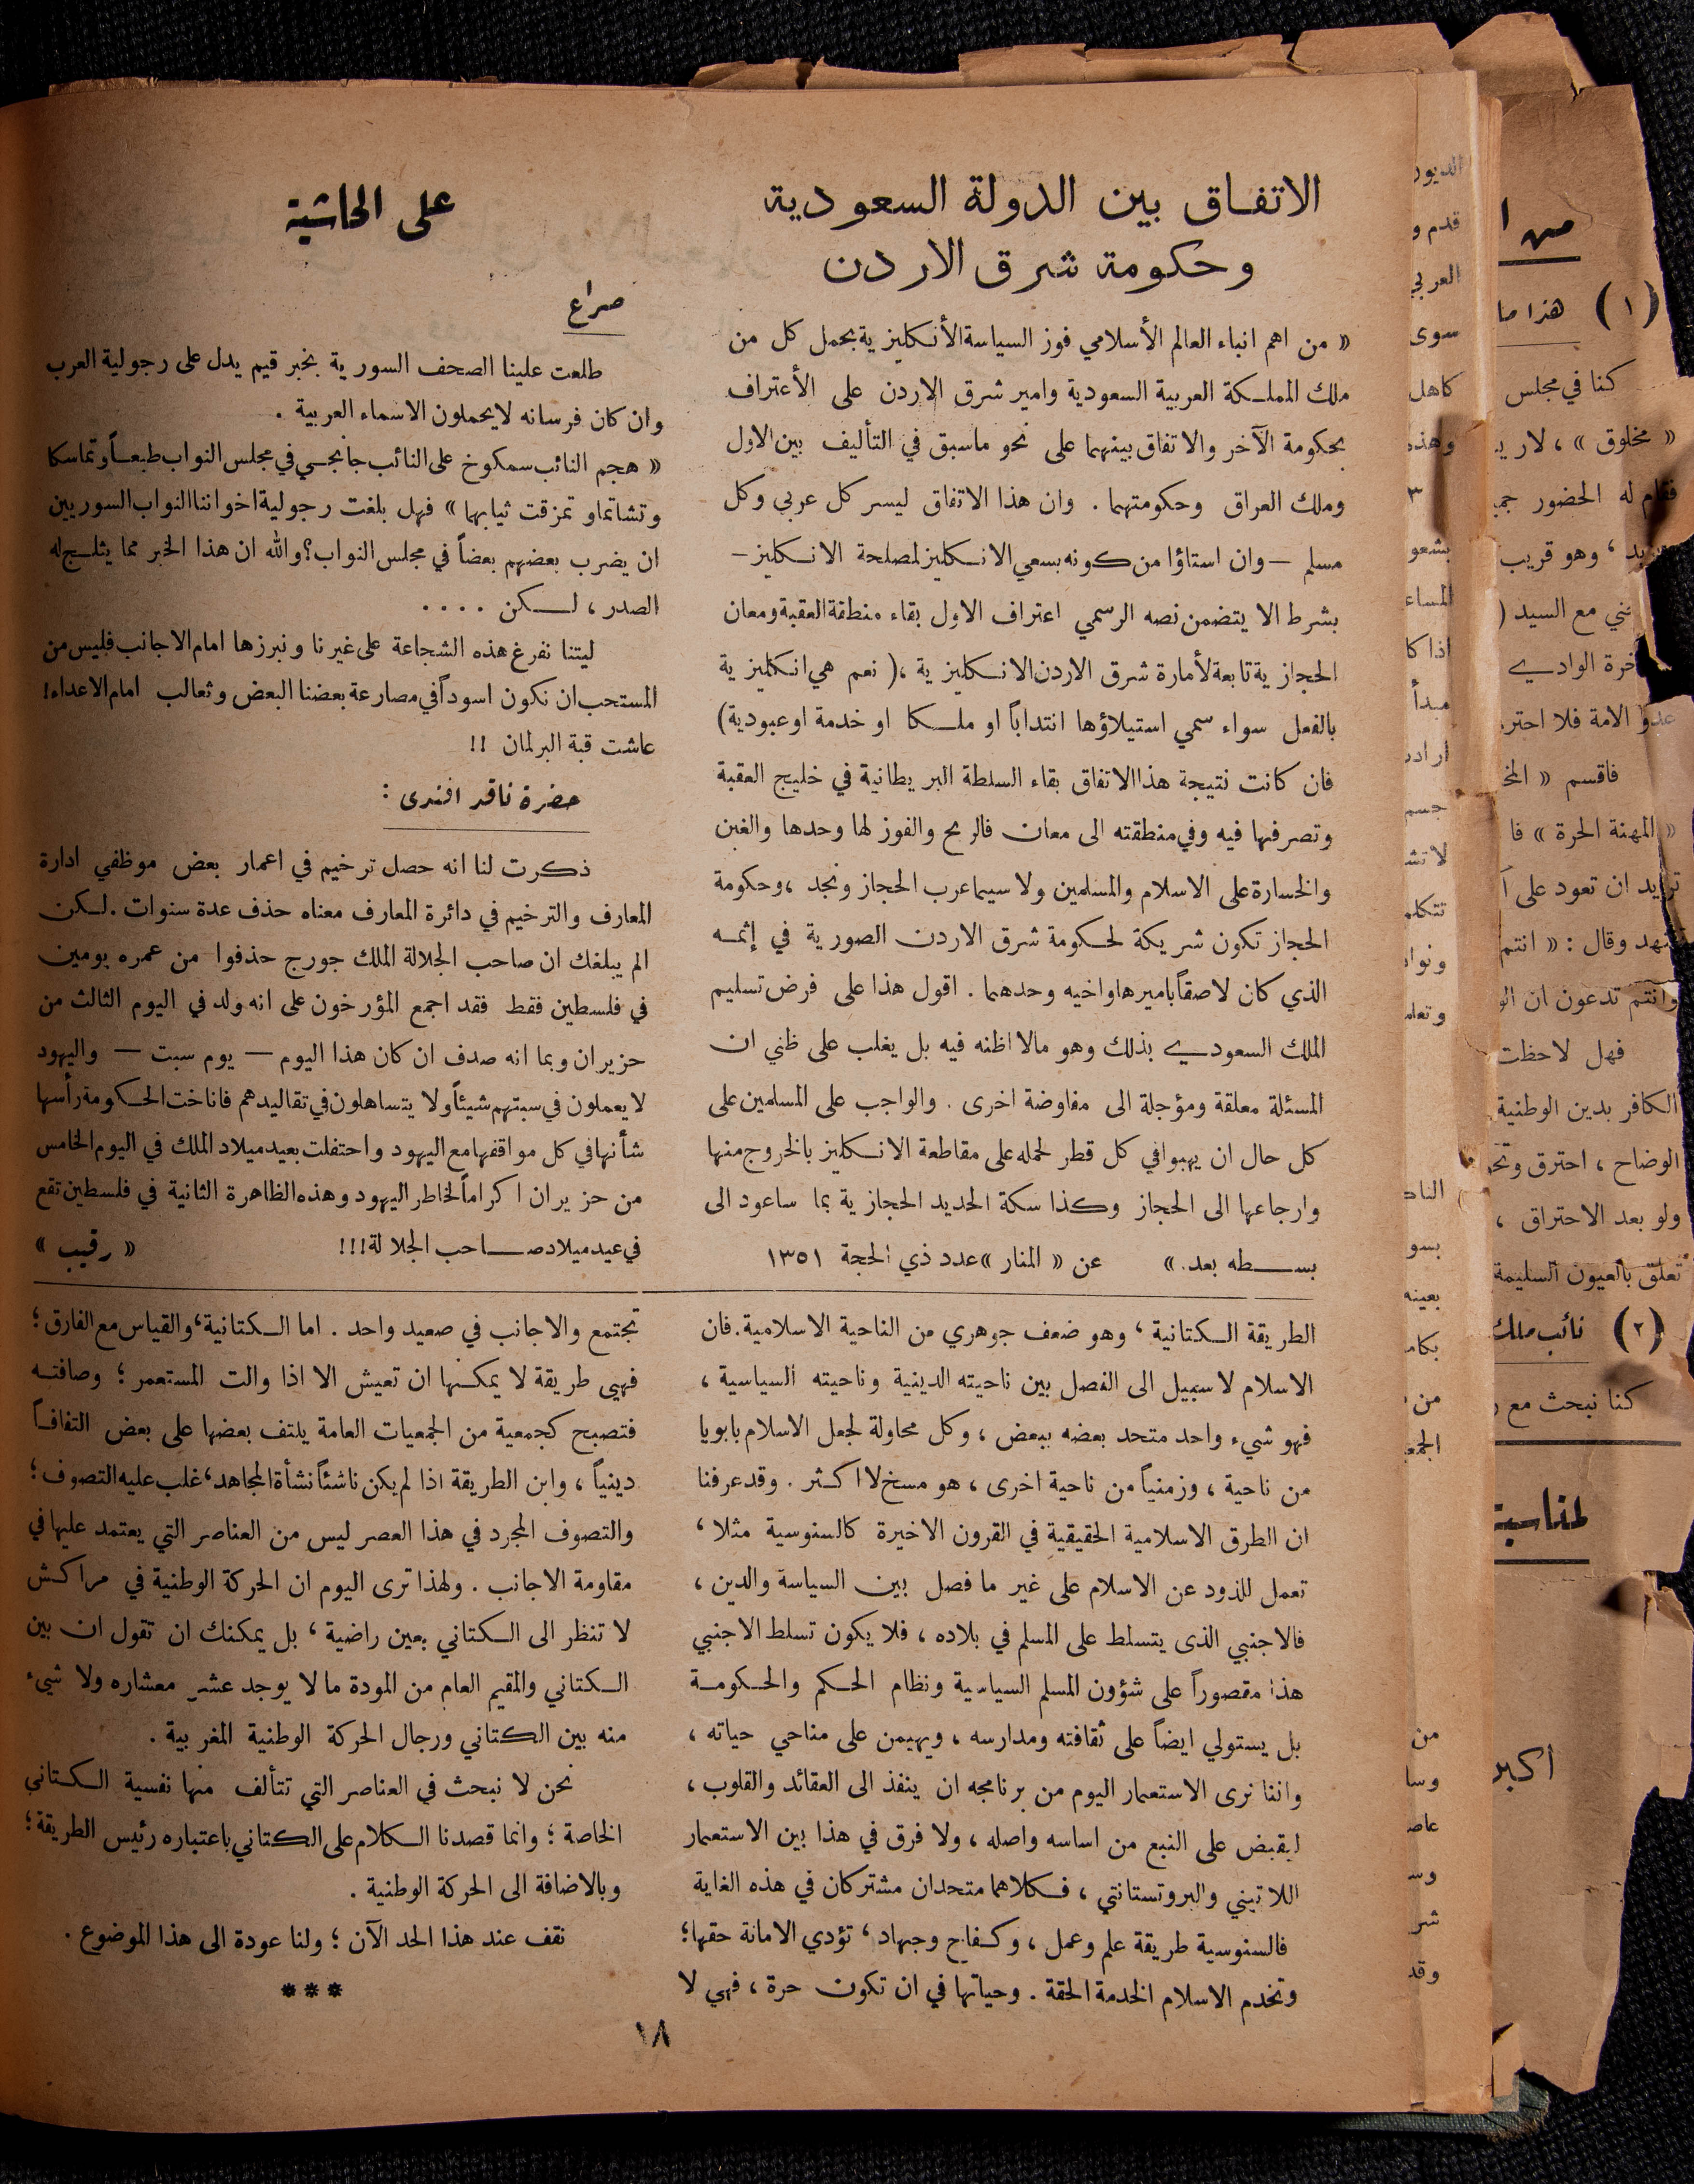 الاتفاق بين الدولة السعودية
وحكومة شرق الاردن
« من اهم انباء العالم الأسلامي فوز السياسة الأنكليزية بحمل كل من
ملك المملكة العربية السعودية وامير شرق الاردن على الأعتراف
بحكومة الآخر والاتفاق بينهما على نحو ماسبق في التأليف بين الاول
وملك العراق وحكومتهما . وان هذا الاتفاق ليسر كل عربي وكل
مسلم — وان استاؤا من كونه بسعي الانكليز لمصلحة الانكليز —
بشرط الا يتضمن نصه الرسمي اعتراف الاول بقاء منطقة العقبة ومعان
الحجازية تابعة لأمارة شرق الاردن الانكليزية ، ( نعم هي انكليزية
بالفعل سواء سمي استيلاؤها انتداباً او ملكا او خدمة او عبودية )
فان كانت نتيجة هذا الاتفاق بقاء السلطة البريطانية في خليج العقبة
وتصرفها فيه وفي منطقته الى معان فالربح والفوز لها وحدها والغبن
والخسارة على الاسلام والمسلمين ولا سيما عرب الحجاز ونجد ، وحكومة
الحجاز تكون شريكة لحكومة شرق الاردن الصورية في إثمه
الذي كان لاصقاً باميرها واخيه وحدهما . اقول هذا على فرض تسليم
الملك السعودي بذلك وهو مالا اظنه فيه بل يغلب على ظني ان
المسئلة معلقة ومؤجلة الى مفاوضة اخرى . والواجب على المسلمين على
كل حال ان يهبوا في كل قطر لحمله على مقاطعة الانكليز بالخروج منها
وارجاعها الى الحجاز وكذا سكة الحديد الحجازية بما ساعود الى
بسطه بعد . » عن « المنار » عدد ذي الحجة ١٣٥١
على الحاشية
صراع
طلعت علينا الصحف السورية بخبر قيم يدل على رجولية العرب
وان كان فرسانه لا يحملون الاسماء العربية .
« هجم النائب سمكوخ على النائب جانجي في مجلس النواب طبعاً وتماسكا
وتشاتما و تمزقت ثيابهما » فهل بلغت رجولية اخواننا النواب السوريين
ان يضرب بعضهم بعضاً في مجلس النواب ؟ والله ان هذا الخبر مما يثلج له
الصدر ، لكن ....
ليتنا نفرغ هذه الشجاعة على غيرنا ونبرزها امام الاجانب فليس من
المستحب ان نكون اسوداً في مصارعة بعضنا البعض وثعالب امام الاعداء !
عاشت قبة البرلمان !!
حضرة ناقد افندى :
ذكرت لنا انه حصل ترخيم في اعمار بعض موظفي ادارة
المعارف والترخيم في دائرة المعارف معناه حذف عدة سنوات . لكن
الم يبلغك ان صاحب الجلالة الملك جورج حذفوا من عمره يومين
في فلسطين فقط فقد اجمع المؤرخون على انه ولد في اليوم الثالث من
حزيران وبما انه صدف ان كان هذا اليوم — يوم سبت — واليهود
لا يعملون في سبتهم شيئاً ولا يتساهلون في تقاليدهم فاناخت الحكومة رأسها
شأنها في كل مواقفها مع اليهود واحتفلت بعيد ميلاد الملك في اليوم الخامس
من حزيران اكراماً لخاطر اليهود وهذه الظاهرة الثانية في فلسطين تقع
في عيد ميلاد صاحب الجلالة !!! « رقيب »
الطريقة الكتانية ، وهو ضعف جوهري من الناحية الاسلامية . فان
الاسلام لا سبيل الى الفصل بين ناحيته الدينية وناحيته السياسية ،
فهو شيء واحد متحد بعضه ببعض ، وكل محاولة لجعل الاسلام بابويا
من ناحية ، وزمنياً من ناحية اخرى ، هو مسخ لا اكثر . وقد عرفنا
ان الطرق الاسلامية الحقيقية في القرون الاخيرة كالسنوسية مثلا ،
تعمل للذود عن الاسلام على غير ما فصل بين السياسة والدين ،
فالاجنبي الذى يتسلط على المسلم في بلاده ، فلا يكون تسلط الاجنبي
هذا مقصوراً على شؤون المسلم السياسية ونظام الحكم والحكومة
بل يستولي ايضاً على ثقافته ومدارسه ، ويهيمن على مناحي حياته ،
واننا نرى الاستعمار اليوم من برنامجه ان ينفذ الى العقائد والقلوب ،
ليقبض على النبع من اساسه واصله ، ولا فرق في هذا بين الاستعمار
اللاتيني والبروتستانتي ، فكلاهما متحدان مشتركان في هذه الغاية
فالسنوسية طريقة علم وعمل ، وكفاح وجهاد ، تؤدي الامانة حقها ؛
وتخدم الاسلام الخدمة الحقة . وحياتها في ان تكون حرة ، فهي لا
تجتمع والاجانب في صعيد واحد . اما الكتانية ، والقياس مع الفارق ؛
فهي طريقة لا يمكنها ان تعيش الا اذا والت المستعمر ؛ وصافته
فتصبح كجمعية من الجمعيات العامة يلتف بعضها على بعض التفافاً
دينياً ، وابن الطريقة اذا لم يكن ناشئاً نشأة المجاهد ، غلب عليه التصوف ؛
والتصوف المجرد في هذا العصر ليس من العناصر التي يعتمد عليها في
مقاومة الاجانب . ولهذا ترى اليوم ان الحركة الوطنية في مراكش
لا تنظر الى الكتاني بعين راضية ، بل يمكنك ان تقول ان بين
الكتاني والمقيم العام من المودة ما لا يوجد عشر معشاره ولا شيء
منه بين الكتاني ورجال الحركة الوطنية المغربية .
نحن لا نبحث في العناصر التي تتألف منها نفسية الكتاني
الخاصة ؛ وانما قصدنا الكلام على الكتاني باعتباره رئيس الطريقة ؛
وبالاضافة الى الحركة الوطنية .
نقف عند هذا الحد الآن ؛ ولنا عودة الى هذا الموضوع .
***
١٨
قدم و
العربي
سوى
كاهل
وهذه
٣
اذا كا
مبدأ
من
(١) هذا ما
كنا في مجلس
« مخلوق » ، لا ري
فقام له الحضور جمي
، وهو قريب
ني مع السيد (
خرة الوادي
عدو الامة فلا احتر
فاقسم « المخ
« المهنة الحرة » فا
تريد ان تعود على
وقال : « انتم
وانتم تدعون ان الو
فهل لاحظت
الكافر بدين الوطنية
الوضاح ، احترق وتح
ولو بعد الاحتراق ،
تعلق بالعيون السليمة
(٢) نائب ملك
كنا نبحث مع
لمناسبة
اكبر